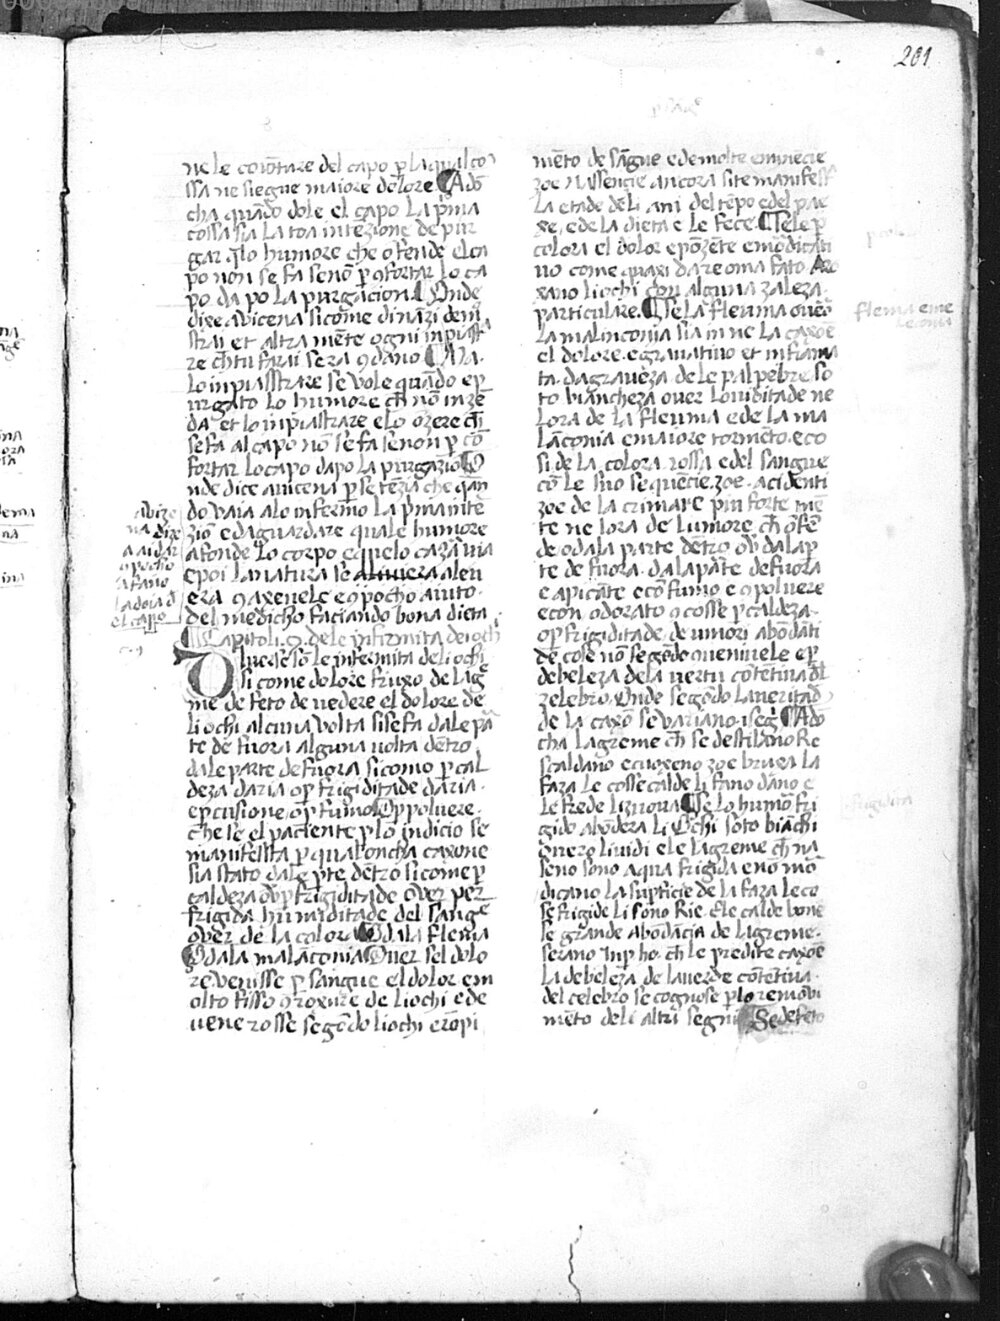 201
ne le coiōtare del capo p̱ la qual co
ssa ne siegue maiore dolore ¶ Adō
cha quādo dole el capo la p̱ma
cossa sia la toa intēzione de pur
gar q̄lo humore che ofende el ca
po non se fa senō p̱ ɔfortar lo ca
po da po la purgacion ¶ Onde
dixe avicena sicome dināzi demo
strai et altra mēte ogni inpiastr
re ch̄ tu farai sera ɔdano ¶ Ma
lo inpiasstrare se vole quādo e p̱
urgato lo humore ch̄ nō inze
da et lo inpiastrare e lo ozere ch̄
se fa al capo nō se fa senon p̱ cō
fortar lo capo dapo la purgazio ¶ O
nde dice avicena p̱ setēzia che q̄an
do vaia a lo infermo la p̱ma itē
ziō e da guardare quale humore
afonde lo corpo e quelo cazā via
e poi la natura se aliuiera aleu
era ɔ axevele e ɔ pocho aiuto
del medicho faciando bona dieta
avize
na dize
a aidar
ɔ pocho
afano
la doia d̄
el capo
¶ Capitoli .9. de le infirmita de i ochi
Diuerse sō le infermita de li ochi
si come dolore fruxo de lag
me defeto de vedere el dolore de
li ochi alcuna volta si se fa da le pa
te de fuora alguna uolta dētro
da le parte de fuora si como p̱ cal
deza daria o p̱ frigiditade daria
e p̱cusione o p̱ fumo O p̱ poluere
che se el paciente p̱ lo indicio se
manifessta p̱ qualoncha caxone
sia stato da le p̱te dētro sicome p̱
caldeza ov̄ p̱ frigiditade Over per
frigida humiditade del sange
over de la colora ¶ O da la flema
¶ O da la malāconia Over sel dolo
re venisse p̱ sangue el dolor e m
olto fisso ɔ roxure de li ochi e de
vene rosse segōdo li ochi e rōpi
mēto de sāgue e de molte eminēcie
zoe nassencie ancora site manifest
la etade de li ani del tēpo e del pae
xe, e de la dieta e le fece. ¶ Se le p̱
colora el dolor e pōzēte e mōdicati
uo come quaxi da reoma fato Aro
xano li ochi con alguna zaleza
particulare. ¶ Se la fleuma oueō
la malinconia sia in ne la caxoē
el dolore. e gravativo et infiama
ta. da graveza de le palpebre so
to biancheza over lividitade ne
lora de la fleuma e de la ma
lāconia e maiore tormēto. e co
si de la colora rossa e del sangue
cō le suo sequēcie. zoe. acidenti
flema eme
zoe de la crimare piu forte mē
te ne lora de lumore ch̄ ofē
de o da la parte dētro ov̄ da la p̱
te de fuora. da la pāte de fuora
e apicāte e cō fumo e ɔ poluere
e con odorato ɔ cosse p̱ caldeza
o p̱ frigiditade de umori abōdāti
de cose nō segōdo ɔuenivele e p̱
debeleza de la vertu cōtētiva d̄l
zelebro. Onde segōdo la veritad
de la caxō se variano. i seg̱i ¶ Ado
cha lagreme ch̄ se destilano Re
scaldano e cuoxeno zoe bruxa la
faza le cosse calde li fano dāno e
le frede li zuova ¶ Se lo humō fri
gido abōdera li Ochi soto biāchi
overo lividi e le lagreme ch̄ na
seno sono aqua frigida e nō mō
dicano la sup̱ficie de la faza le co
se frigide li sono Rie. E le calde bone
se grande abodācia de lagreme
serano In p̱ ho. ch̄ le predite caxōe
frigidita
la debeleza de la verde cōtētiva
del celebro se cognose p̱ lo remōvi
mēto de li altri segni ¶ Se defeto